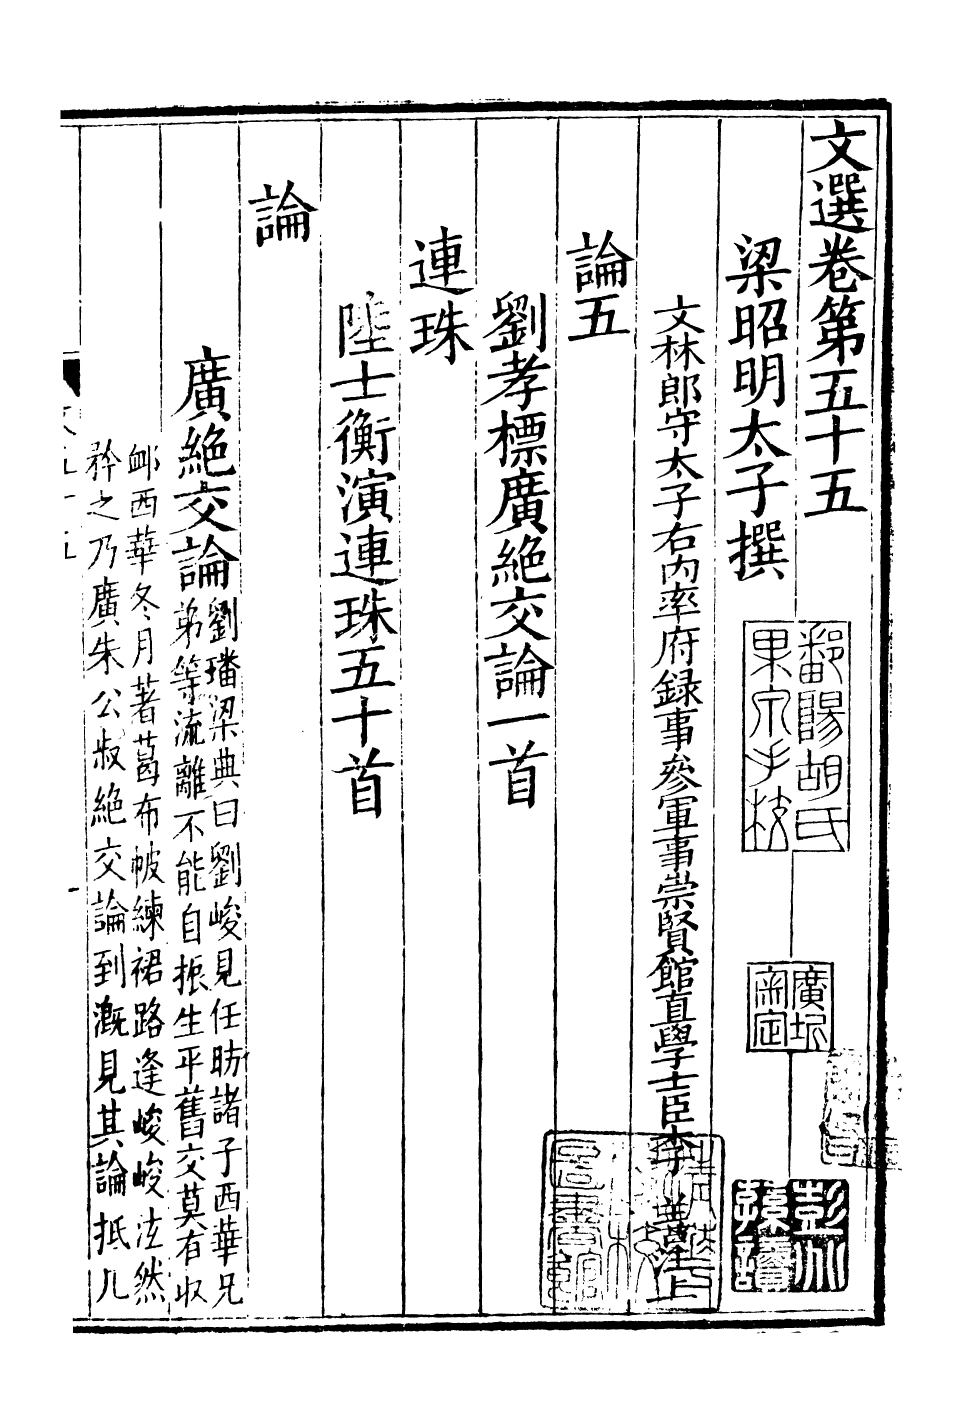 文選卷第五十五
梁昭明太子撰
文林郎守太子右内率府録事參軍事崇賢館直學士臣李善注上
論五
劉孝標廣絶交論一首
連珠
陸士衡演連珠五十首
論
廣絶交論
劉璠梁典曰劉峻見任昉諸子西華兄
弟等流離不能自振生平舊交莫有收
䘏西華冬月著葛布帔練裙路逢峻峻泫然
矜之乃廣朱公叔絶交論到溉見其論抵几
鄱陽胡氏
果泉手校